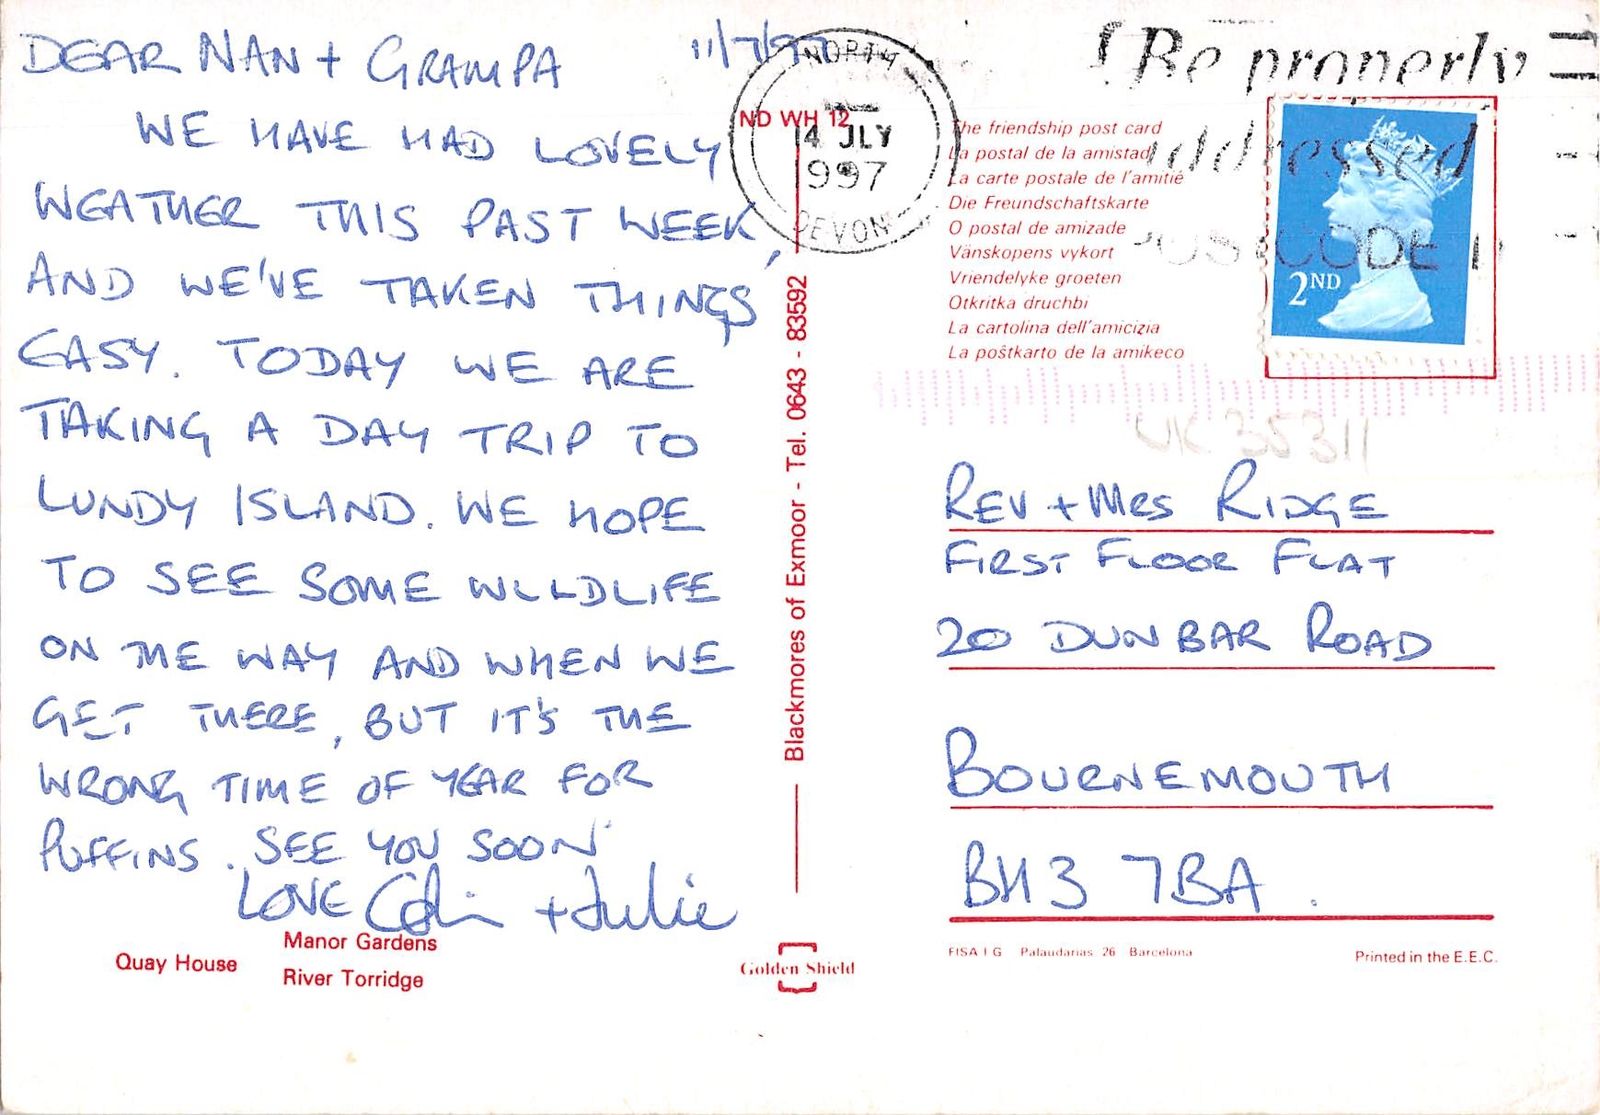 DEAR NAN + GRAMPA
11/7/97
WE HAVE HAD LOVELY
WEATHER THIS PAST WEEK,
AND WE'VE TAKEN THINGS
EASY. TODAY WE ARE
TAKING A DAY TRIP TO
LUNDY ISLAND. WE HOPE
TO SEE SOME WILDLIFE
ON THE WAY AND WHEN WE
GET THERE, BUT IT'S THE
WRONG TIME OF YEAR FOR
PUFFINS. SEE YOU SOON
LOVE Colin + Julie
Quay House
Manor Gardens
River Torridge
ND WH 12
Blackmores of Exmoor - Tel. 0643 - 83592
Golden Shield
NORTH
14 JLY
1997
DEVON
Be properly
addressed
POSTCODE IT
The friendship post card
La postal de la amistad
La carte postale de l'amitié
Die Freundschaftskarte
O postal de amizade
Vänskopens vykort
Vriendelyke groeten
Otkritka druchbi
La cartolina dell'amicizia
La poštkarto de la amikeco
2ND
UK 35311
REV + MRS RIDGE
FIRST FLOOR FLAT
20 DUNBAR ROAD
BOURNEMOUTH
BH3 7BA.
FISA I G Palaudarias 26 Barcelona
Printed in the E.E.C.